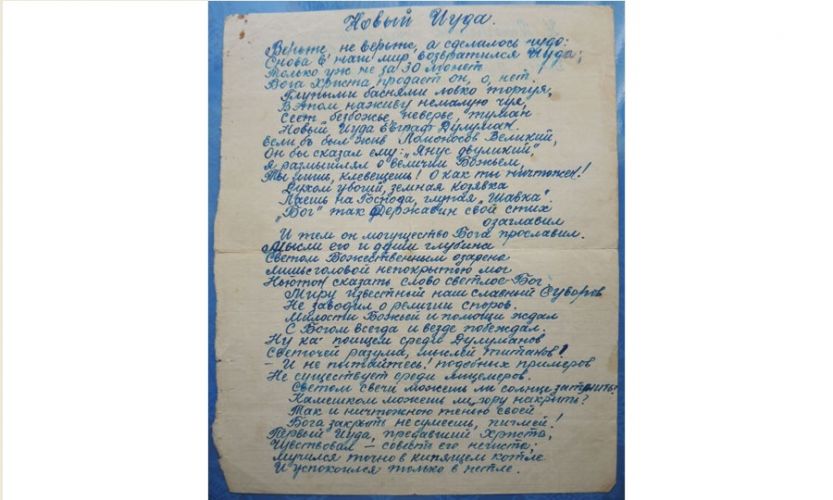 Новый Иуда.
Верьте не верьте, а сделалось чудо:
Снова в наш мир возвратился Иуда;
Только уж не за 30 монет
Бога Христа продает он, о, нет:
Глупыми баснями ловко торгуя,
В этом наживу немалую чуя,
Сеет безбожье, неверье, туман
Новый Иуда Евграф Дулуман.
Если бъ был жив Ломоносов Великий,
Он бы сказал ему: „Янус двуликий"
Я размышлял о величии Божьем,
Ты лишь, клевещешь! О как ты ничтожен!
Духом убогий, земная козявка
Лаешь на Господа, глупая „Шавка".
„Бог" так Державин свой стих
озаглавил
И тем он могущество Бога прославил.
Мысли его и души глубина
Светом Божественным озарена
Лишь с головой непокрытою мог
Ньютон сказать слово светлое-Бог.
Миру известный наш славный Суворов
Не заводил о религии споров.
Милости Божьей и помощи ждал
С Богом всегда и везде побеждал.
Ну ка- поищем среди Дулуманов
Светочей разума, мыслей титанов!
– И не пытайтесь! подобных примеров
Не существует среди лицемеров.
Светом свечи можешь ли солнце затмить?
Камешком можешь ли гору накрыть?
Так и ничтожною тенью своей
Бога закрыть не сумеешь, пигмей!
Первый Иуда, предавший Христа,
Чувствовал – совесть его нечиста:
Мучился точно в кипящем котле
И успокоился только в петле.